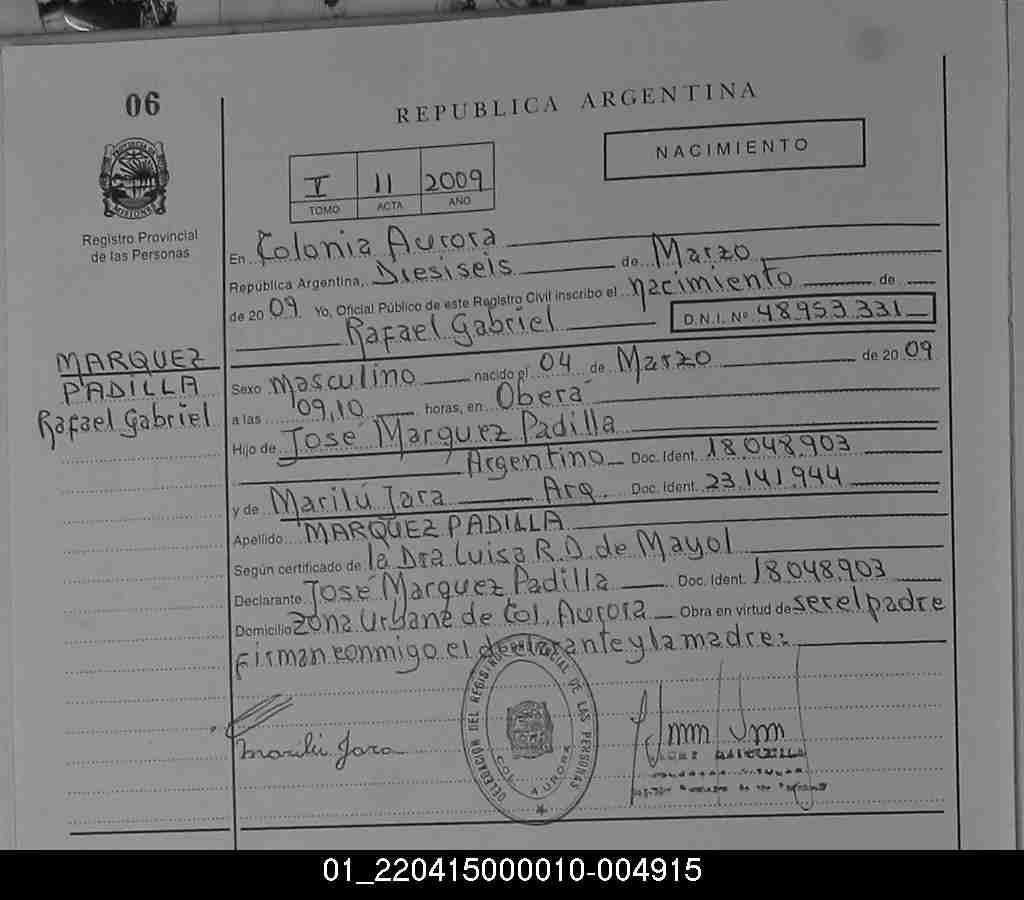 06
REPUBLICA ARGENTINA
NACIMIENTO
I 11 2009
TOMO ACTA AÑO
PROVINCIA DE MISIONES
Registro Provincial
de las Personas
En Colonia Aurora
República Argentina, Diesiseis de Marzo
de 2009 Yo, Oficial Público de este Registro Civil inscribo el nacimiento de
Rafael Gabriel D.N.I. Nº 48.953.331
MARQUEZ
PADILLA
Rafael Gabriel
Sexo masculino nacido el 04 de Marzo de 2009
a las 09,10 horas, en Oberá
Hijo de José Marquez Padilla
Argentino Doc. Ident. 18.048.903
y de Marilú Jara Arg. Doc. Ident. 23.141.944
Apellido MARQUEZ PADILLA
Según certificado de la Dra Luisa R.D. de Mayol
Declarante José Marquez Padilla Doc. Ident. 18.048.903
Domicilio zona Urbana de Col. Aurora Obra en virtud de ser el padre
Firman conmigo el declarante y la madre:
Marilú Jara
DELEGACION DEL REGISTRO PROVINCIAL DE LAS PERSONAS
COL. AURORA
01_220415000010-004915